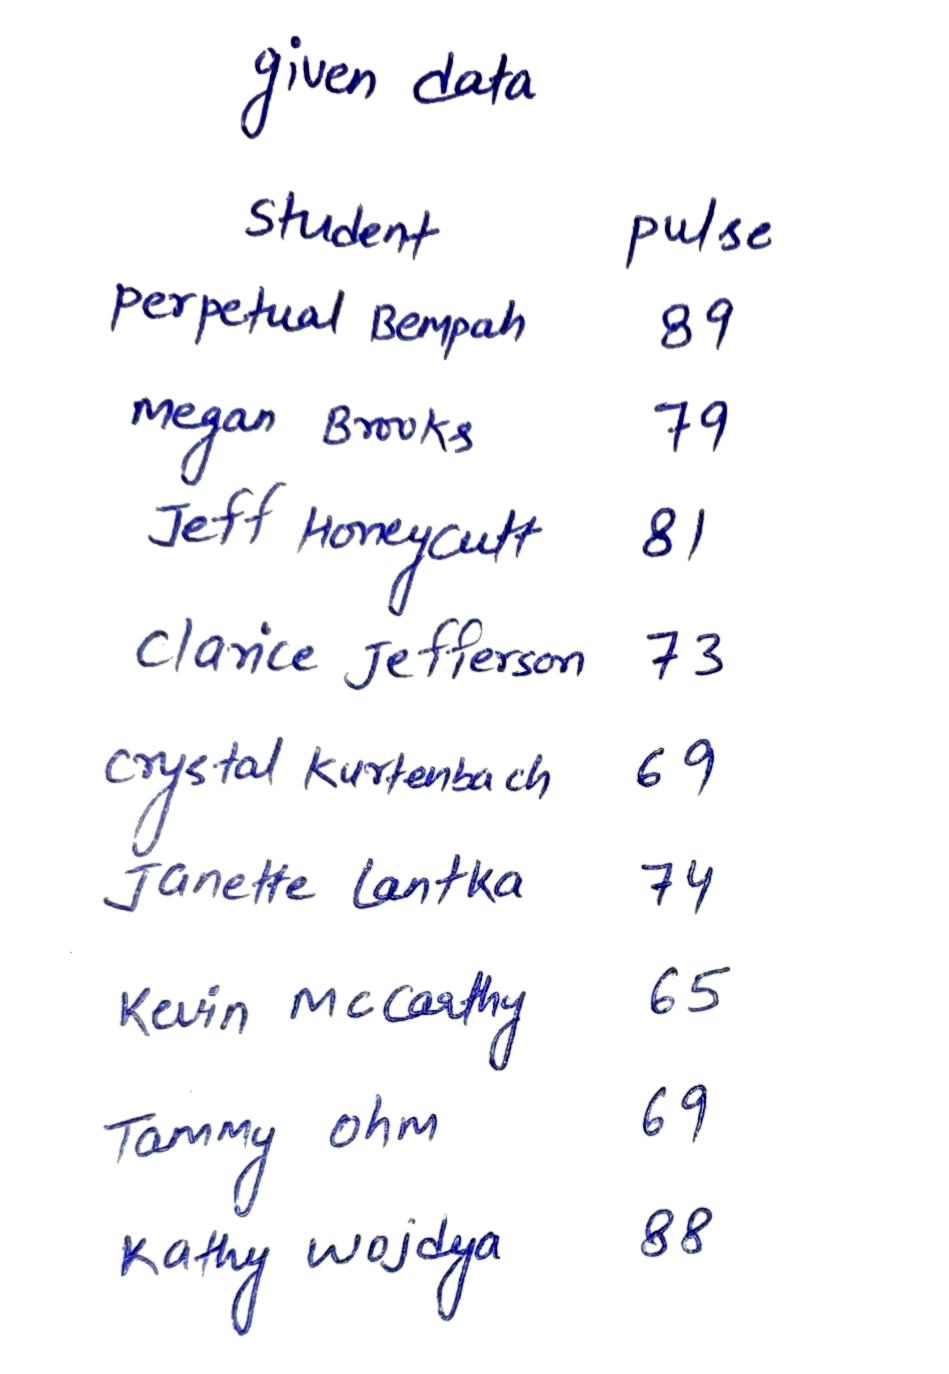 given data
student pulse
perpetual Bempah 89
Megan Brooks 79
Jeff Honeycutt 81
Clarice Jefferson 73
crystal Kurtenbach 69
Janette Lantka 74
Kevin McCarthy 65
Tammy ohm 69
Kathy wojdya 88